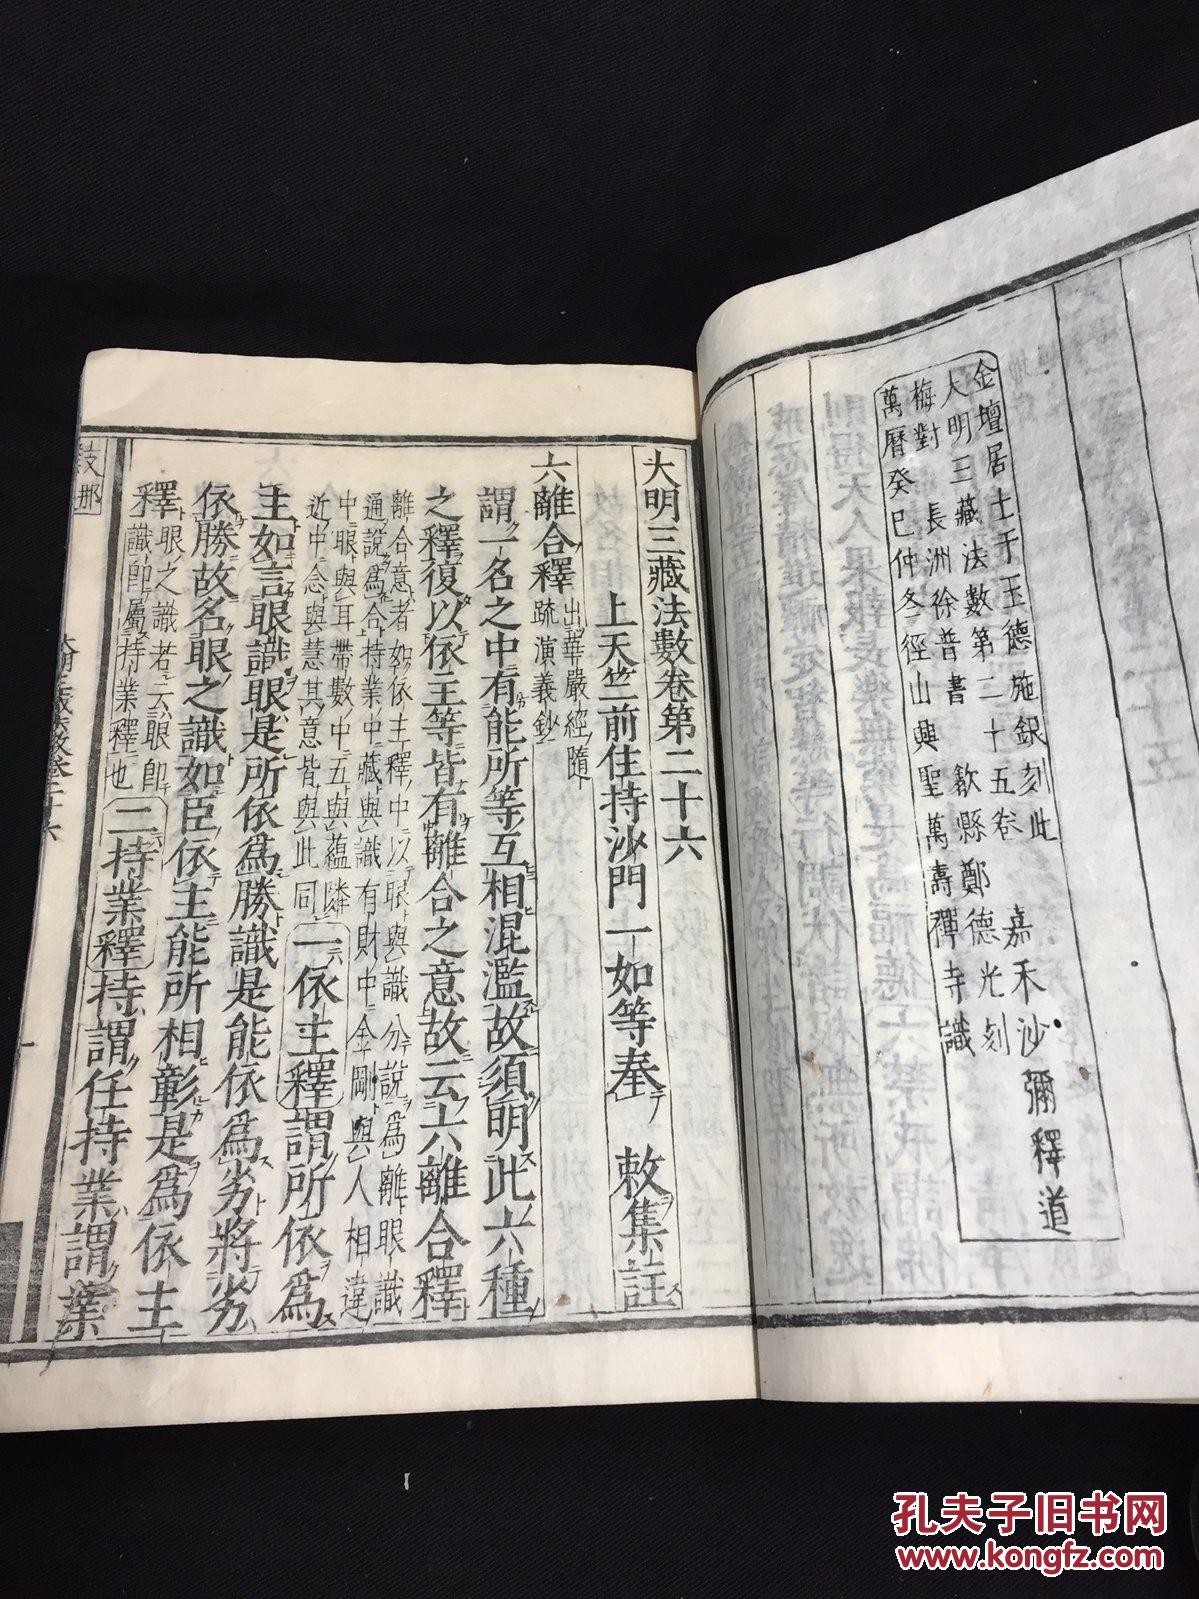 金壇居士于玉德施銀刻此
大明三藏法數第二十五卷　嘉禾沙彌釋道
梅對　長洲徐普書　歙縣鄭德光刻
萬曆癸巳仲冬徑山興聖萬壽禪寺識
大明三藏法數卷第二十六
上天竺前住持沙門一如等奉　敕集註
六離合釋出華嚴經隨
疏演義鈔
謂一名之中有能所等互相混濫故須明此六種
之釋復以依主等皆有離合之意故云六離合釋
離合意者如依主釋中以眼與識分說爲離眼識
通說爲合持業中藏與識有財中金剛與人相違
中眼與耳帶數中五與蘊隣
近中念與慧其意皆與此同
一依主釋謂所依爲
主如言眼識眼是所依爲勝識是能依爲劣將劣
依勝故名眼之識如臣依主能所相彰是爲依主
釋眼之識若云眼即
識即屬持業釋也
二持業釋持謂任持業謂業
大明三藏法數卷二十六
一
孔夫子旧书网
www.kongfz.com